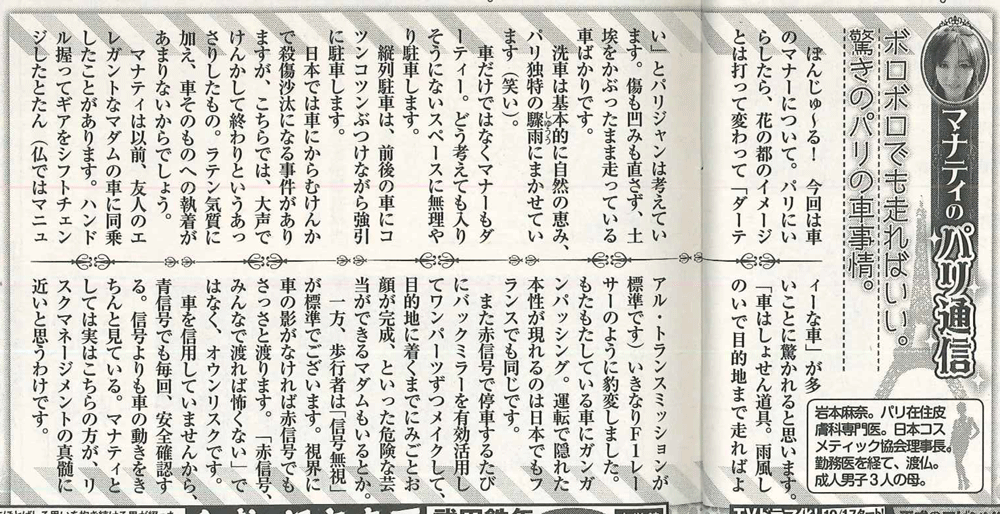 マナティのパリ通信
ボロボロでも走ればいい。
驚きのパリの車事情。
岩本麻奈。パリ在住皮
膚科専門医。日本コス
メティック協会理事長。
勤務医を経て、渡仏。
成人男子3人の母。
ぼんじゅ〜る! 今回は車
のマナーについて。パリにい
らしたら、花の都のイメージ
とは打って変わって「ダーテ
ィーな車」が多
いことに驚かれると思います。
「車はしょせん道具。雨風し
のいで目的地まで走ればよ
い」とパリジャンは考えてい
ます。傷も凹みも直さず、土
埃をかぶったまま走っている
車ばかりです。
洗車は基本的に自然の恵み、
パリ独特の驟雨(しゅうう)にまかせてい
ます(笑い)。
車だけではなくマナーもダ
ーティー。どう考えても入り
そうにないスペースに無理や
り駐車します。
縦列駐車は、前後の車にコ
ツンコツンぶつけながら強引
に駐車します。
日本では車にからむけんか
で殺傷沙汰になる事件があり
ますが、こちらでは、大声で
けんかして終わりというあっ
さりしたもの。ラテン気質に
加え、車そのものへの執着が
あまりないからでしょう。
マナティは以前、友人のエ
レガントなマダムの車に同乗
したことがあります。ハンド
ル握ってギアをシフトチェン
ジしたとたん(仏ではマニュ
アル・トランスミッションが
標準です)いきなりF1レー
サーのように豹変しました。
もたもたしている車にガンガ
ンパッシング。運転で隠れた
本性が現れるのは日本でもフ
ランスでも同じです。
また赤信号で停車するたび
にバックミラーを有効活用し
てワンパーツずつメイクして、
目的地に着くまでにみごとお
顔が完成、といった危険な芸
当ができるマダムもいるとか。
一方、歩行者は「信号無視」
が標準でございます。視界に
車の影がなければ赤信号でも
さっさと渡ります。「赤信号、
みんなで渡れば怖くない」で
はなく、オウンリスクです。
車を信用していませんから、
青信号でも毎回、安全確認す
る。信号よりも車の動きをき
ちんと見ている。マナティと
しては実はこちらの方が、リ
スクマネージメントの真髄に
近いと思うわけです。